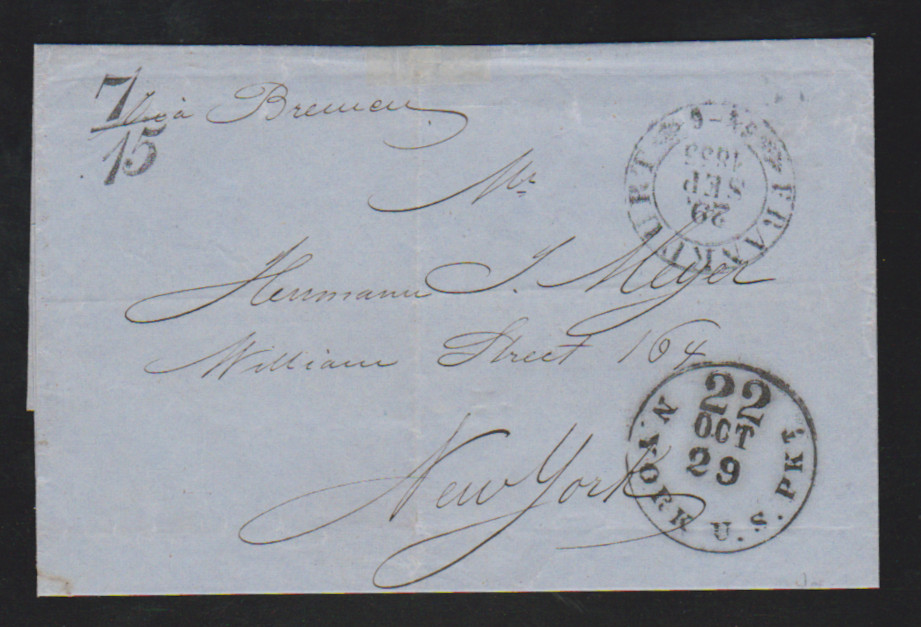 7/15
Via Bremen
FRANKFURT
29.
SEP
1855
Mr
Herrmann J. Meyer
William Street 164
New York
22
OCT
29
N. YORK U. S. PKT